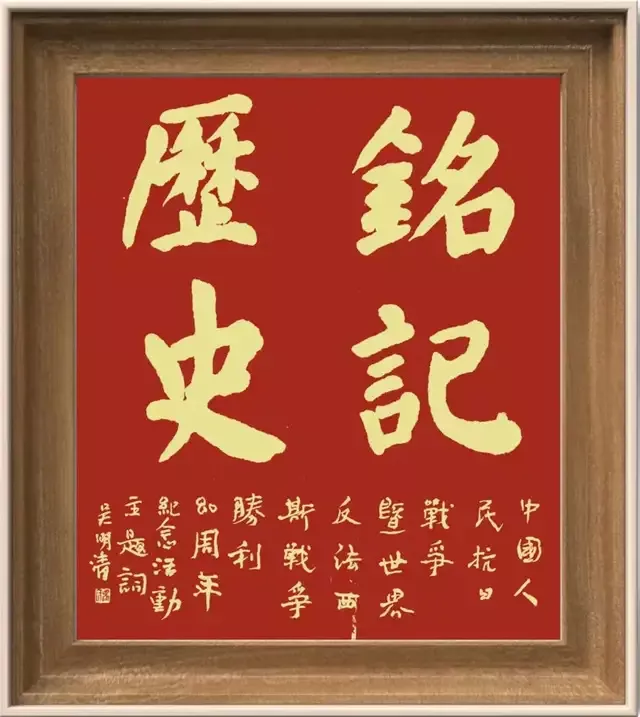 銘記
歷史
中國人
民抗日
戰爭
暨世界
反法西
斯戰爭
勝利
80周年
紀念活動
主題詞
吴明清